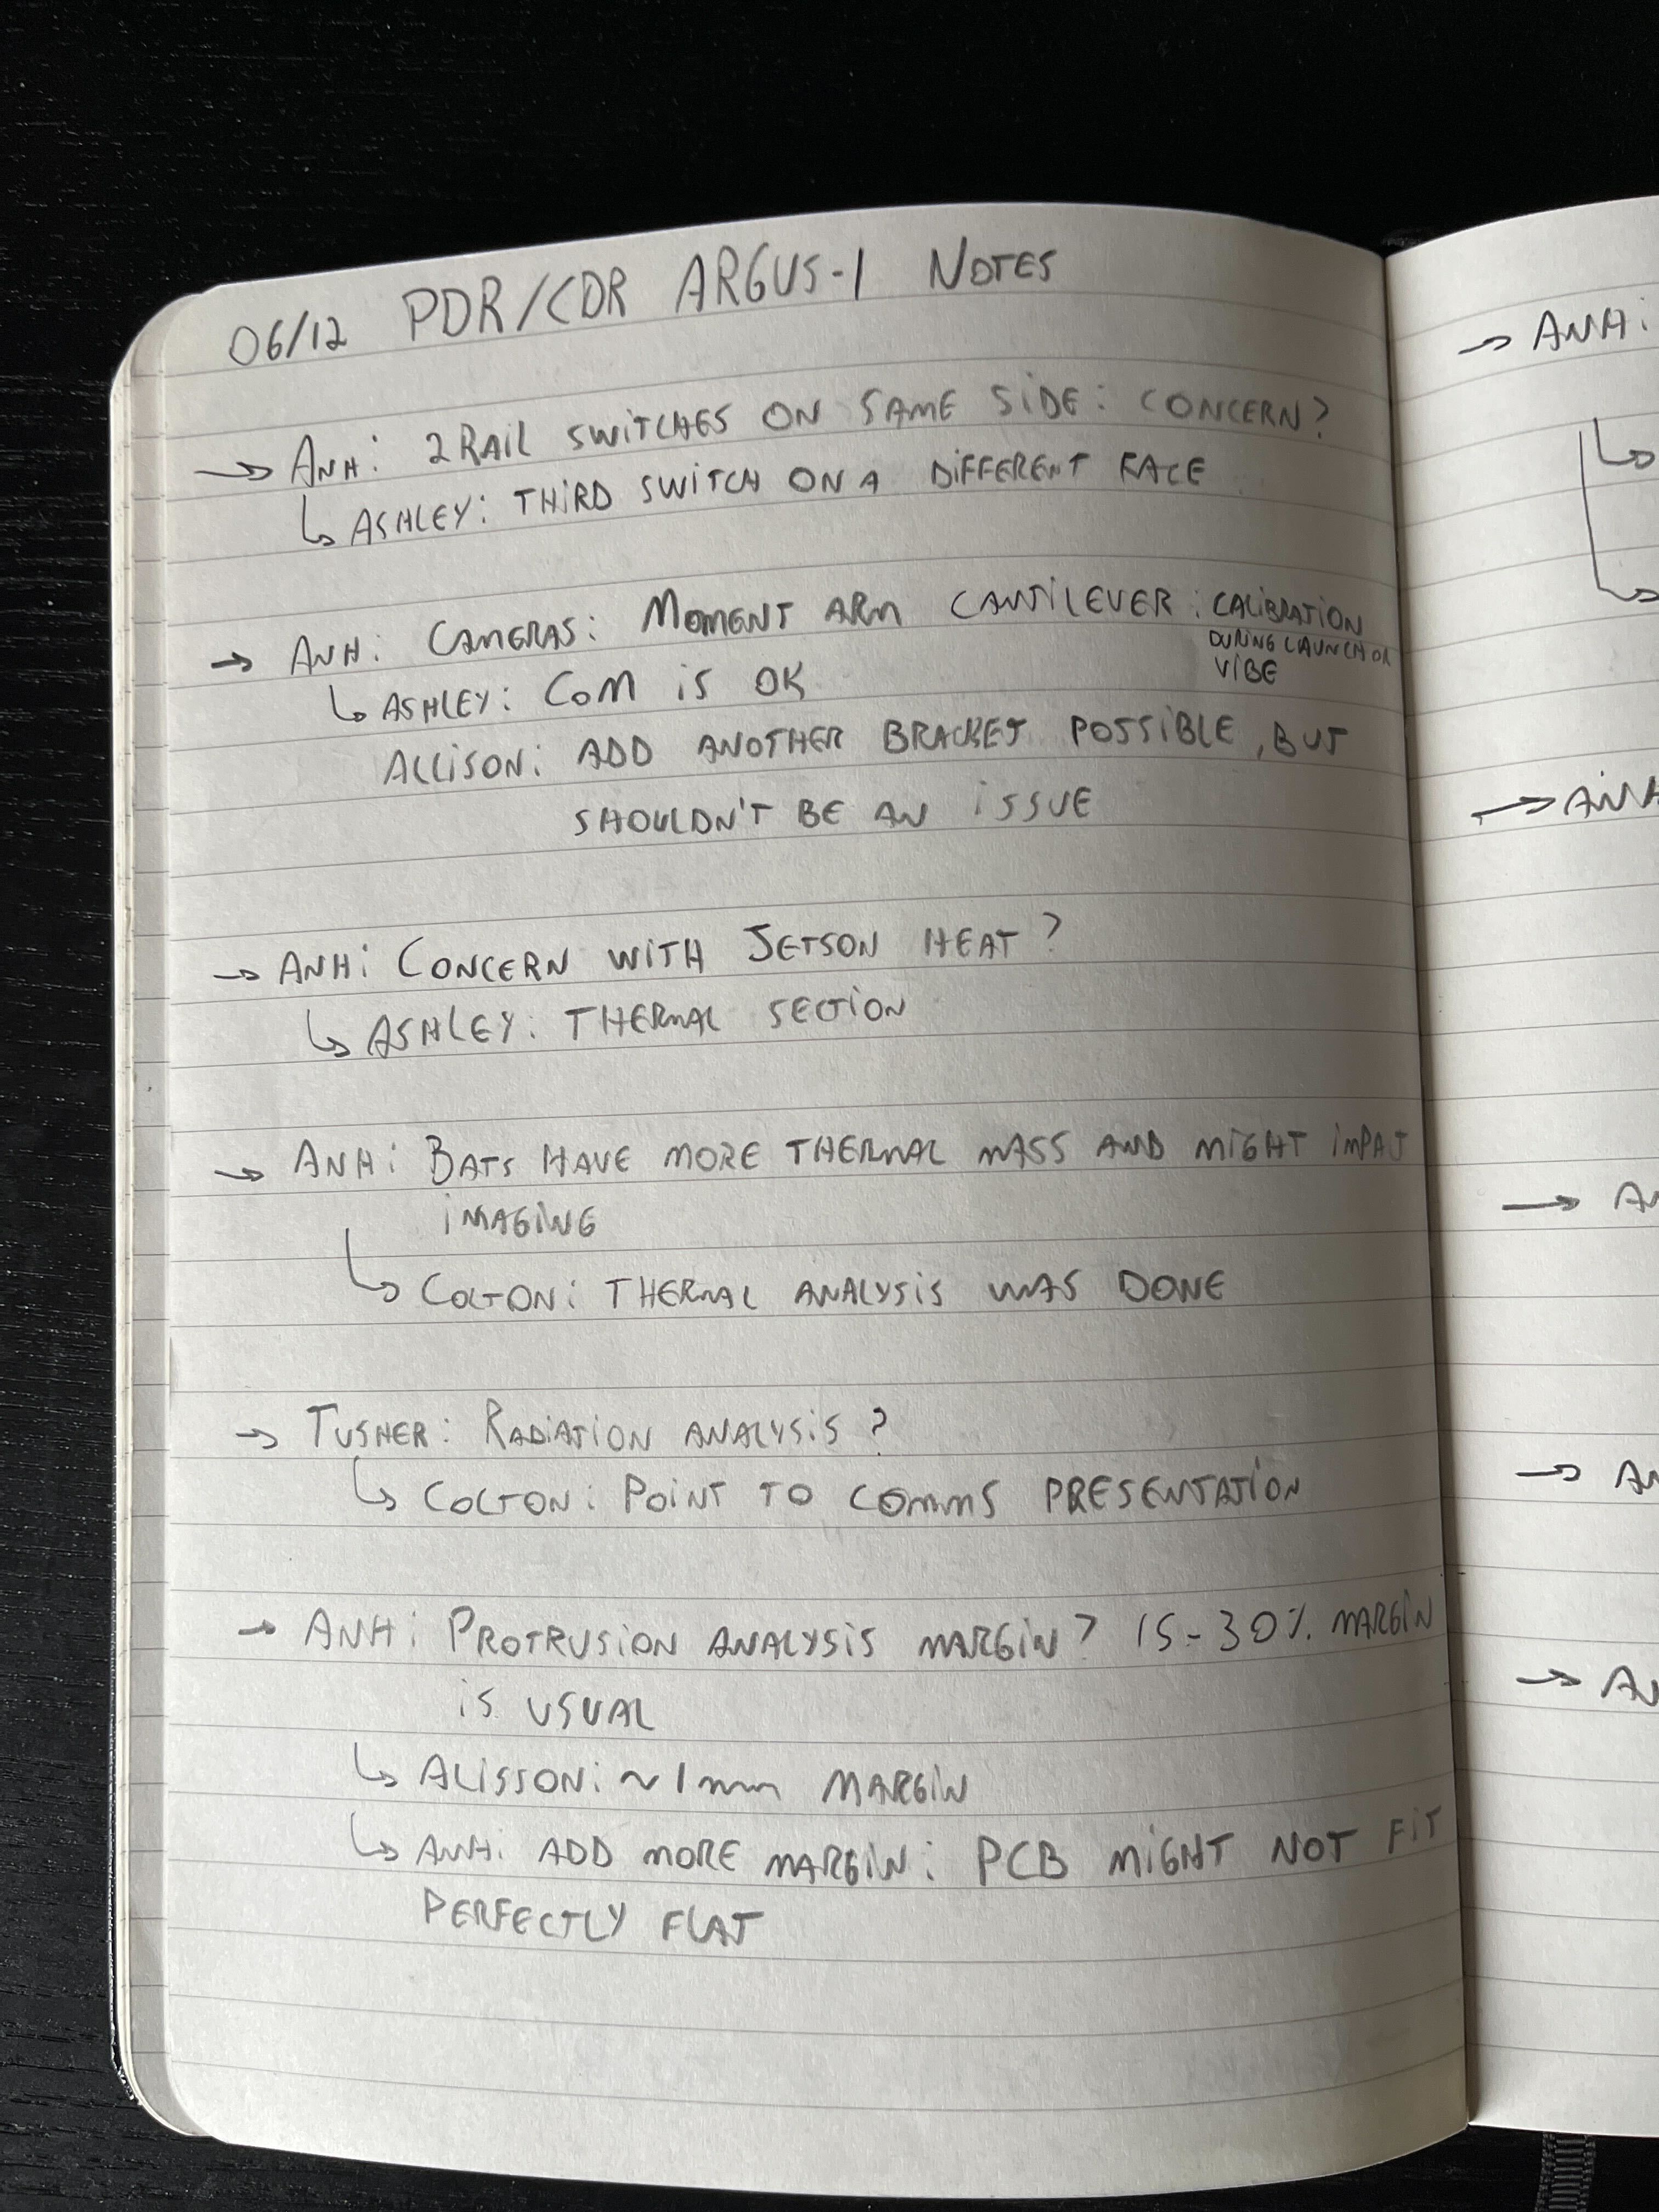 06/12 PDR/CDR ARGUS-1 NOTES
→ ANH: 2 RAIL SWITCHES ON SAME SIDE: CONCERN?
↳ ASHLEY: THIRD SWITCH ON A DIFFERENT FACE
→ ANH: CAMERAS: MOMENT ARM CANTILEVER: CALIBRATION
DURING LAUNCH OR
VIBE
↳ ASHLEY: COM IS OK
ALLISON: ADD ANOTHER BRACKET POSSIBLE, BUT
SHOULDN'T BE AN ISSUE
→ ANH: CONCERN WITH JETSON HEAT?
↳ ASHLEY: THERMAL SECTION
→ ANH: BATS HAVE MORE THERMAL MASS AND MIGHT IMPACT
IMAGING
↳ COLTON: THERMAL ANALYSIS WAS DONE
→ TUSHER: RADIATION ANALYSIS?
↳ COLTON: POINT TO COMMS PRESENTATION
→ ANH: PROTRUSION ANALYSIS MARGIN? 15-30% MARGIN
IS USUAL
↳ ALISSON: ~1mm MARGIN
↳ ANH: ADD MORE MARGIN: PCB MIGHT NOT FIT
PERFECTLY FLAT
→ ANH:
→ ANH
→ AN
→ AN
→ AN